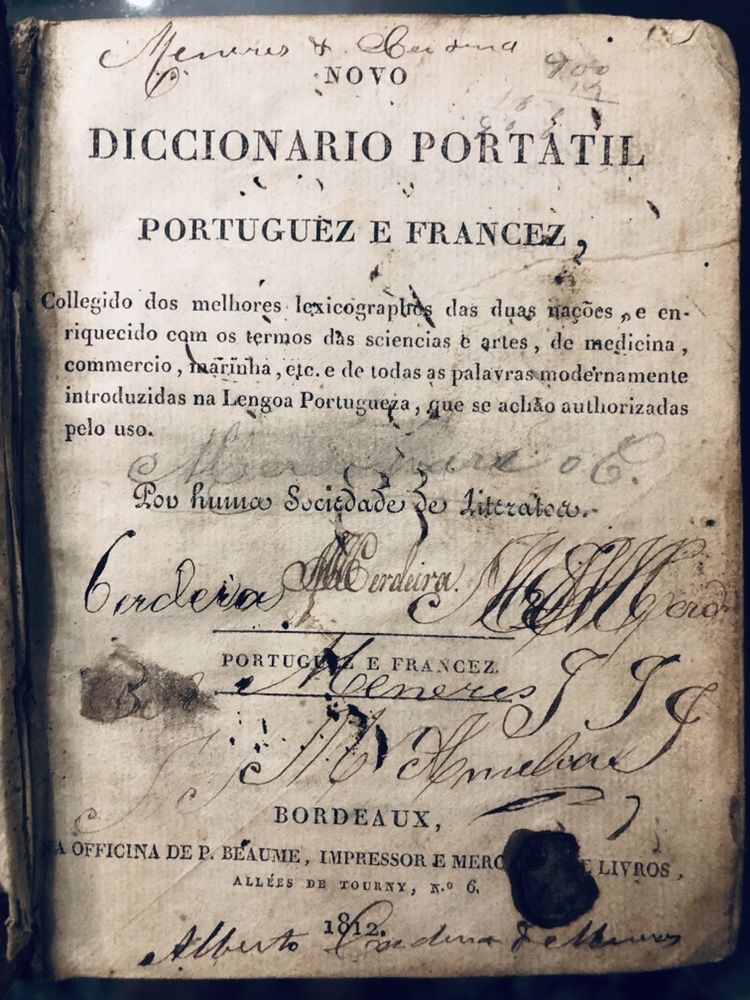 Meneres &
NOVO
900
DICCIONARIO PORTATIL
PORTUGUEZ E FRANCEZ,
Collegido dos melhores lexicographos das duas nações, e en-
riquecido com os termos das sciencias e artes, de medicina,
commercio, marinha, etc. e de todas as palavras modernamente
introduzidas na Lengoa Portugueza, que se achão authorizadas
pelo uso.
Por huma Sociedade de Literatos.
Cerdeira. Cerdeira.
PORTUGUEZ E FRANCEZ.
Meneres
BORDEAUX,
NA OFFICINA DE P. BEAUME, IMPRESSOR E LIVROS,
ALLÉES DE TOURNY, N.º 6.
1812.
Alberto